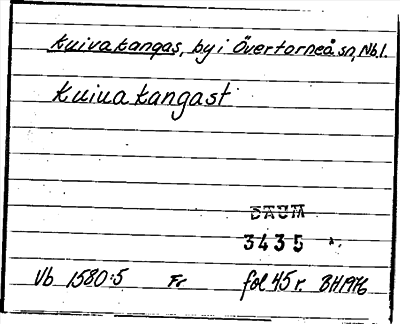 Kuivakangas, by i Övertorneå sn, Nb.l.
Kuiuakangast
DAUM
3435
Vb 1580:5 Fr fol 45 r. BH 1976